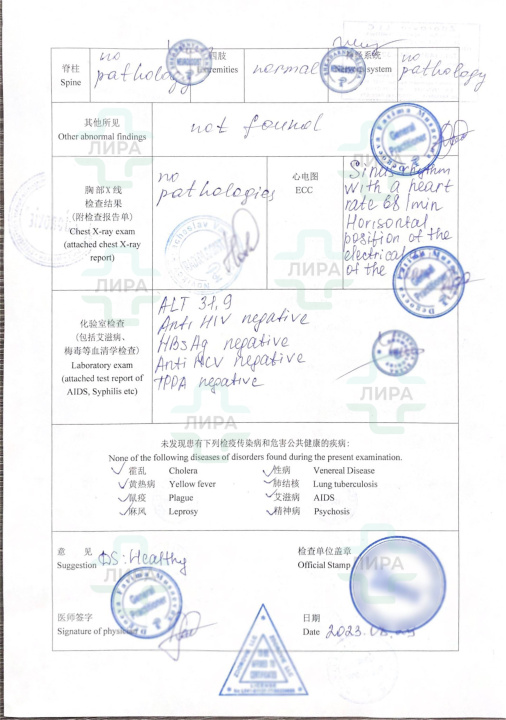 脊柱
Spine
no
pathology
四肢
Extremities
normal
神经系统
Nervous system
no
pathology
其他所见
Other abnormal findings
not found
胸部X线
检查结果
(附检查报告单)
Chest X-ray exam
(attached chest X-ray
report)
no
pathologies
心电图
ECC
Sinus rhythm
with a heart
rate 68/min
Horisontal
position of the
electrical
of the
化验室检查
(包括艾滋病、
梅毒等血清学检查)
Laboratory exam
(attached test report of
AIDS, Syphilis etc)
ALT 31,9
Anti HIV negative
HBsAg negative
Anti HCV negative
TPPA negative
未发现患有下列检疫传染病和危害公共健康的疾病:
None of the following diseases of disorders found during the present examination.
✓ 霍乱 Cholera ✓ 性病 Venereal Disease
✓ 黄热病 Yellow fever ✓ 肺结核 Lung tuberculosis
✓ 鼠疫 Plague ✓ 艾滋病 AIDS
✓ 麻风 Leprosy ✓ 精神病 Psychosis
意 见
Suggestion
DS: Healthy
检查单位盖章
Official Stamp
General
Practitioner
医师签字
Signature of physician
日期
Date 2023.
ЛИРА
ЛИРА
ЛИРА
ЛИРА
ЛИРА
ЛИРА